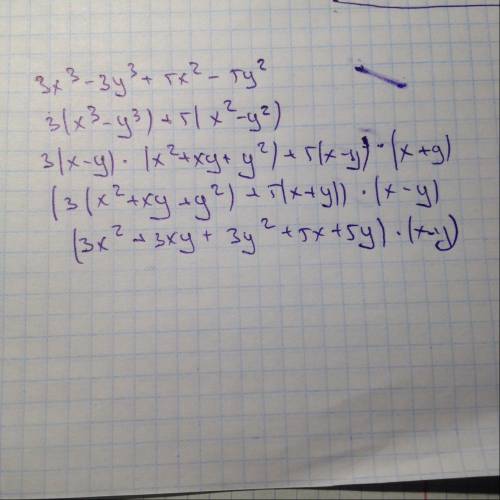 3x³-3y³+5x²-5y²
3(x³-y³)+5(x²-y²)
3(x-y)·(x²+xy+y²)+5(x-y)·(x+y)
(3(x²+xy+y²)+5(x+y))·(x-y)
(3x²+3xy+3y²+5x+5y)·(x-y)